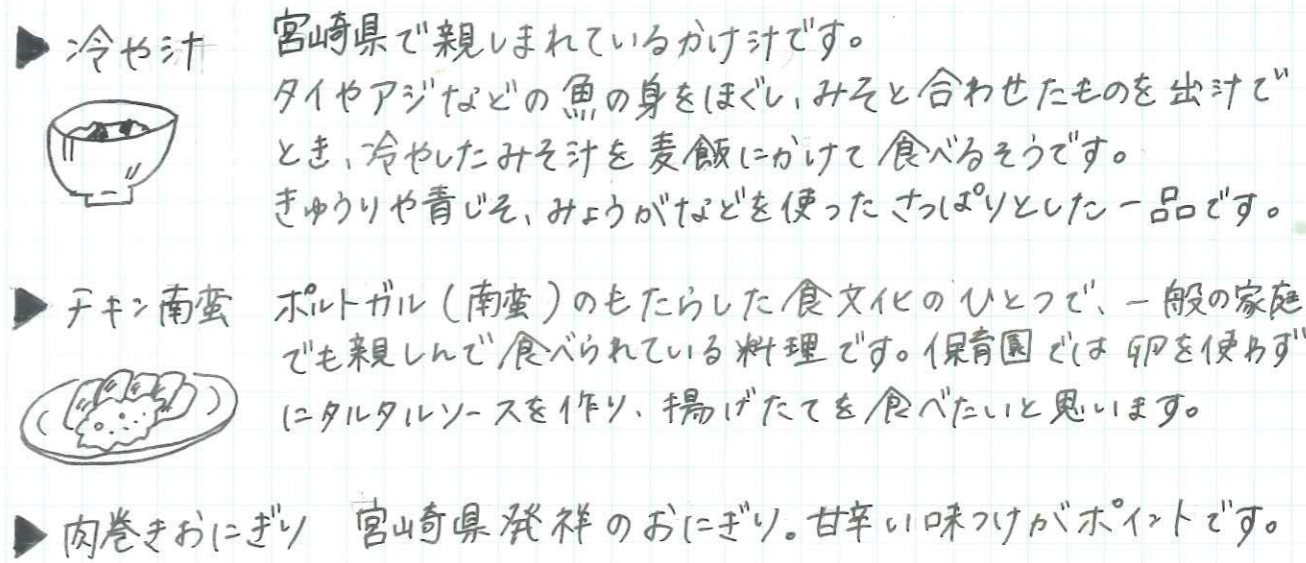 ▶ 冷や汁 宮崎県で親しまれているかけ汁です。
タイやアジなどの魚の身をほぐし、みそと合わせたものを出汁で
とき、冷やしたみそ汁を麦飯にかけて食べるそうです。
きゅうりや青じそ、みょうがなどを使ったさっぱりとした一品です。
▶ チキン南蛮 ポルトガル(南蛮)のもたらした食文化のひとつで、一般の家庭
でも親しんで食べられている料理です。保育園では卵を使わず
にタルタルソースを作り、揚げたてを食べたいと思います。
▶ 肉巻きおにぎり 宮崎県発祥のおにぎり。甘辛い味つけがポイントです。